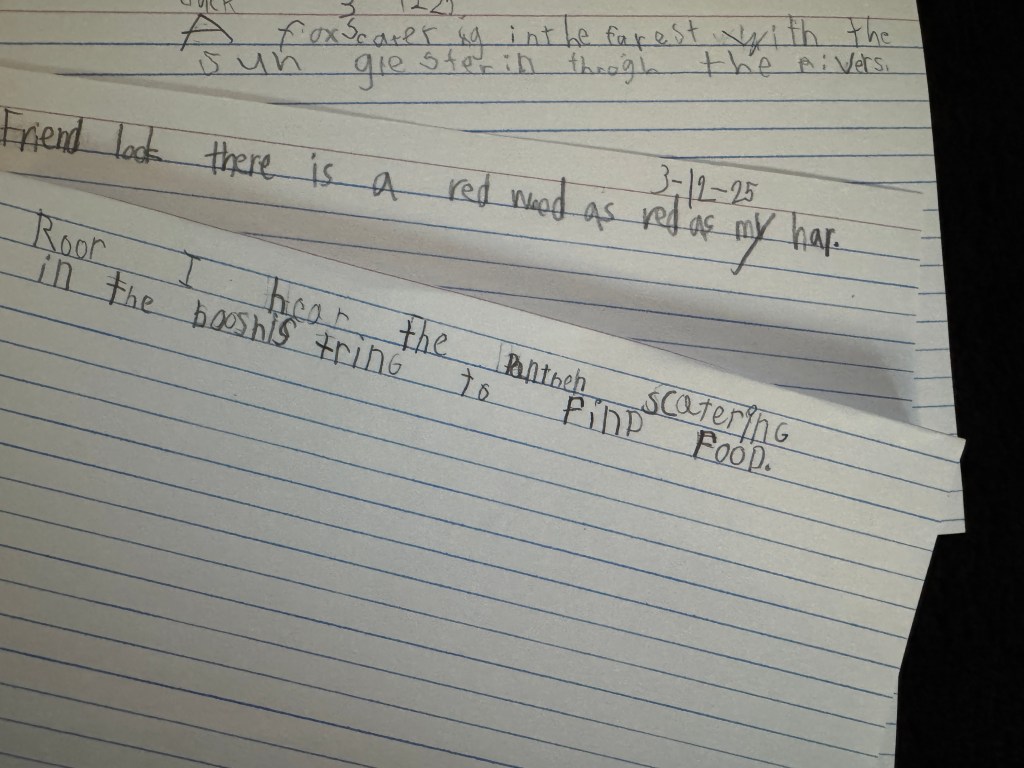 A foxscatering inthe farest with the
sun glesterin throogh the rivers.
3-12-25
Friend look there is a red wood as red as my har.
Roor I hear the scatering
in the booshis tring to Finp Foop.